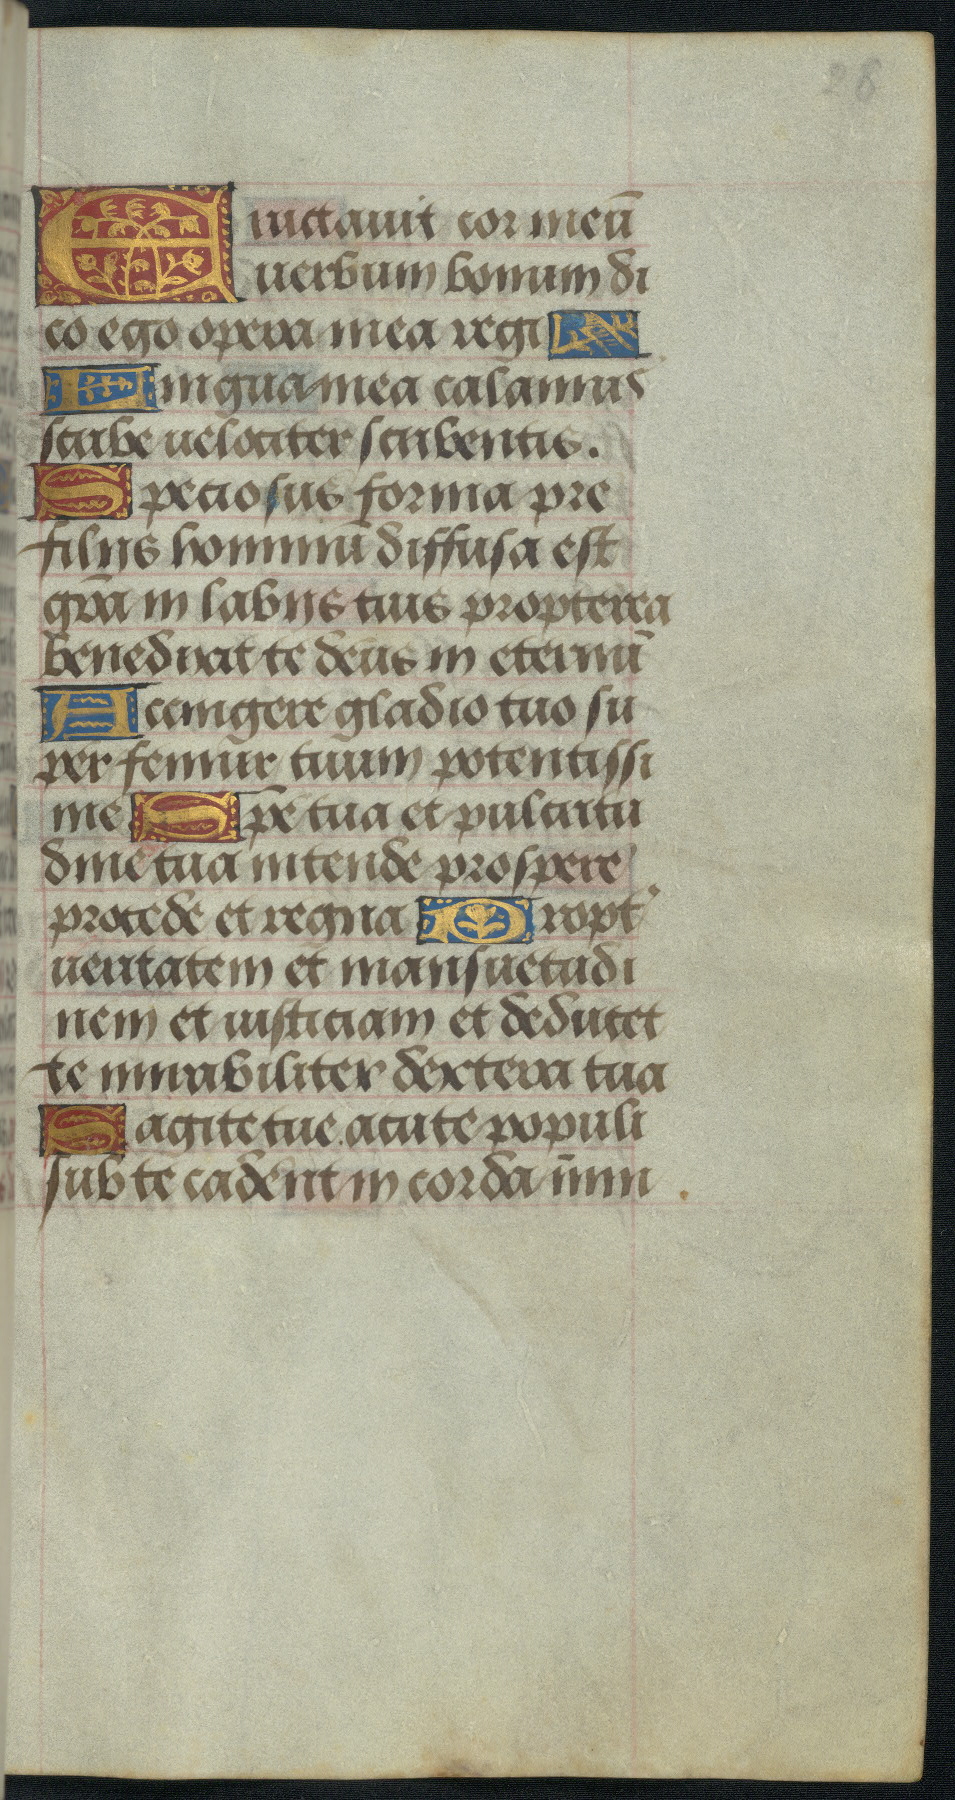 28
Eructauit cor meū
uerbum bonum di
co ego opera mea regi
Lingua mea calamus
scribe uelociter scribentis.
Speciosus forma pre
filijs hominū diffusa est
gr̄a in labijs tuis propterea
benedixit te deus in eternū
Accingere gladio tuo su
per femur tuum potentissi
me Spē tua et pulcritu
dine tua intende prospere
procede et regna Propt'
ueritatem et mansuetudi
nem et iusticiam et deducet
te mirabiliter dextera tua
Sagite tue acute populi
sub te cadent in corda inim